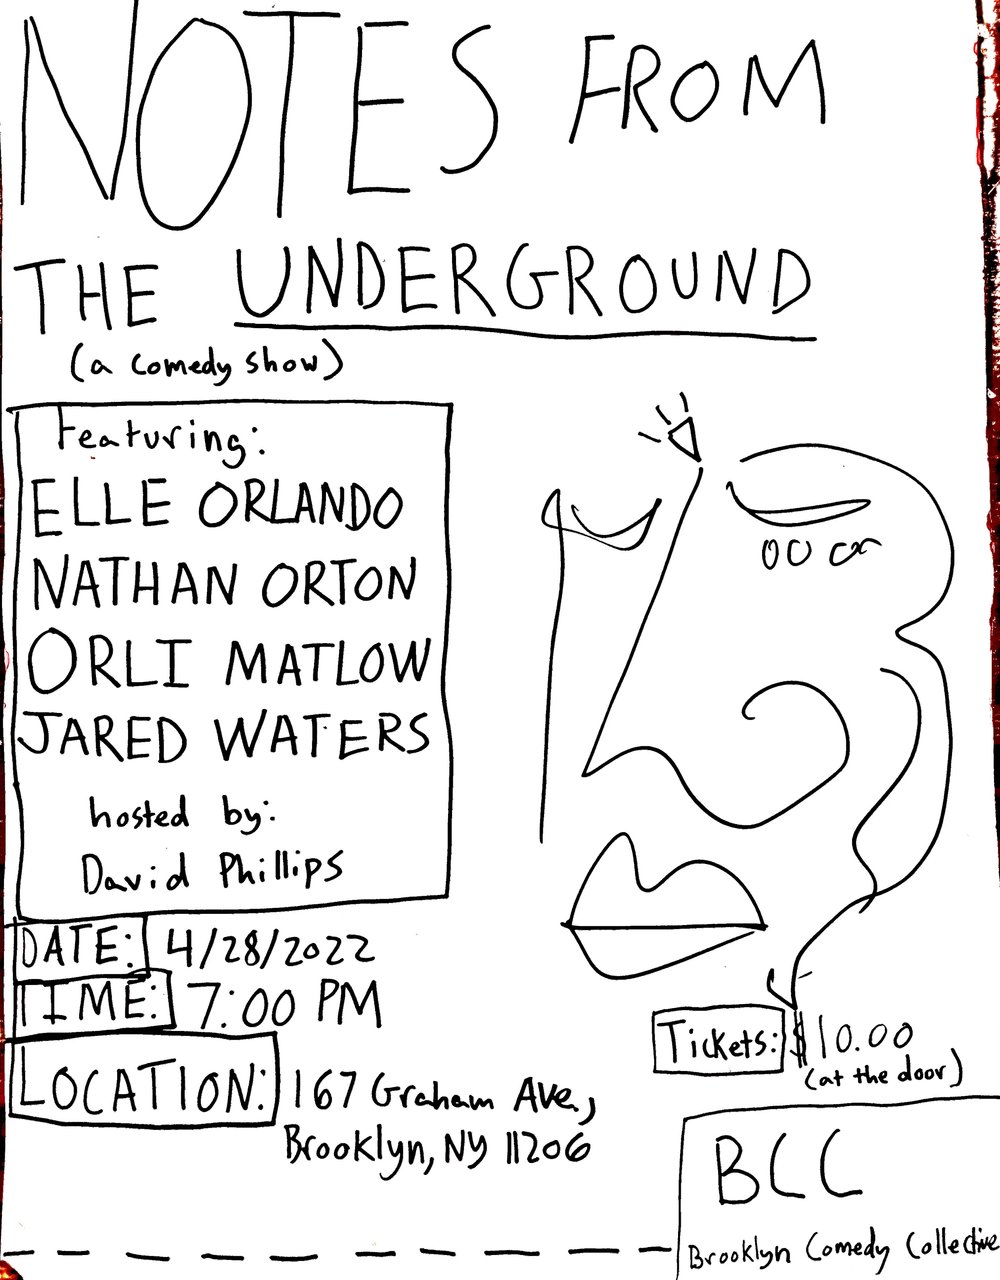 NOTES FROM
THE UNDERGROUND
(a comedy show)
Featuring:
ELLE ORLANDO
NATHAN ORTON
ORLI MATLOW
JARED WATERS
hosted by:
David Phillips
DATE: 4/28/2022
TIME: 7:00 PM
LOCATION: 167 Graham Ave.,
Brooklyn, NY 11206
Tickets: $10.00
(at the door)
BCC
Brooklyn Comedy Collective